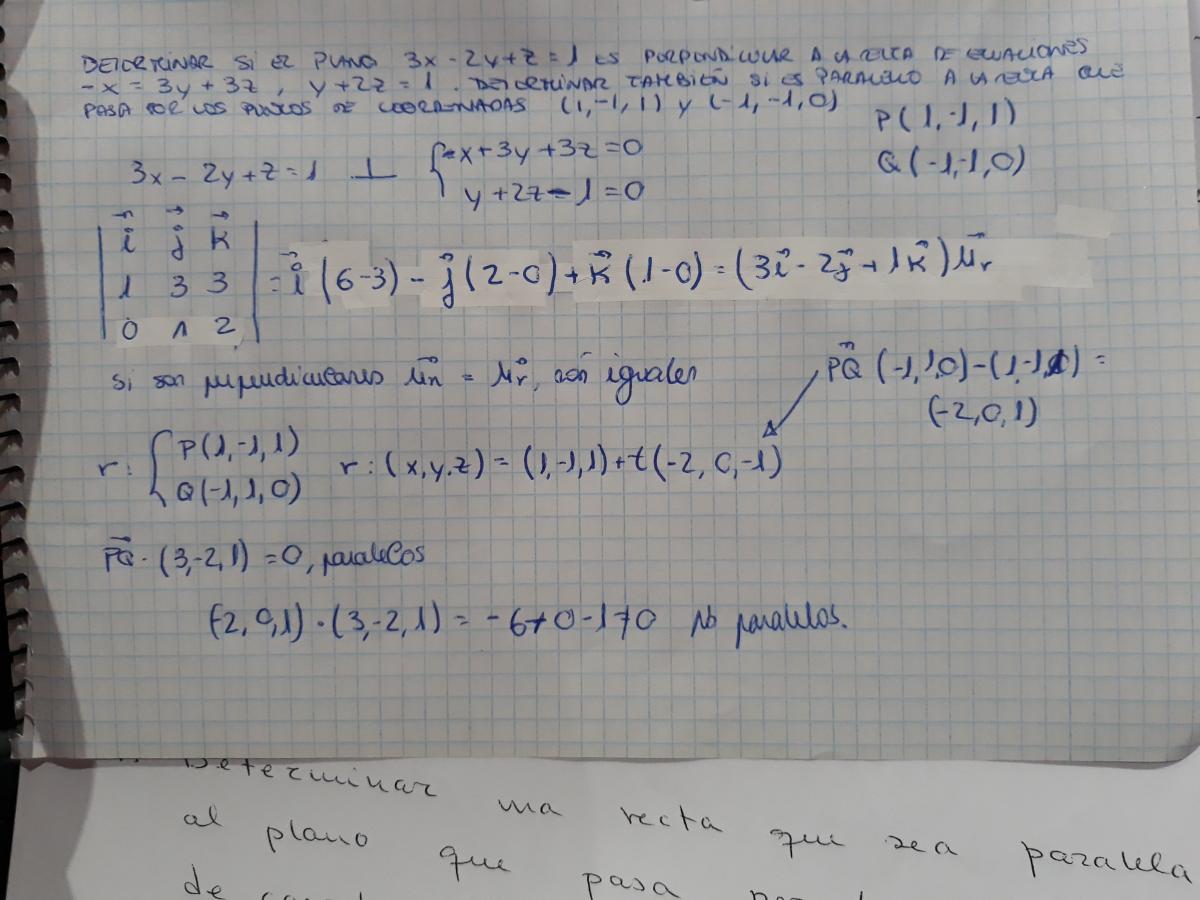 DETERMINAR SI EL PLANO 3x - 2y + z = 1 ES PERPENDICULAR A LA RECTA DE ECUACIONES
-x = 3y + 3z , y + 2z = 1 . DETERMINAR TAMBIÉN SI ES PARALELO A LA RECTA QUE
PASA POR LOS PUNTOS DE COORDENADAS (1, -1, 1) y (-1, -1, 0)
P(1, -1, 1)
Q(-1, -1, 0)
3x - 2y + z = 1 ⊥ { x + 3y + 3z = 0
y + 2z - 1 = 0
| i⃗ j⃗ k⃗ |
| 1 3 3 | = i⃗ (6-3) - j⃗ (2-0) + k⃗ (1-0) = (3i⃗ - 2j⃗ + 1k⃗) u⃗r
| 0 1 2 |
Si son perpendiculares u⃗n = u⃗r, son iguales
PQ⃗ (-1,1,0)-(1,-1,1) =
(-2,0,1)
r: { P(1,-1,1)
Q(-1,1,0)
r: (x,y,z) = (1,-1,1) + t(-2, 0, -1)
PQ⃗ · (3,-2,1) = 0, paralelos
(-2,0,1) · (3,-2,1) = -6+0-1≠0 No paralelos.
Determinar una recta que sea paralela
al plano que pasa
de